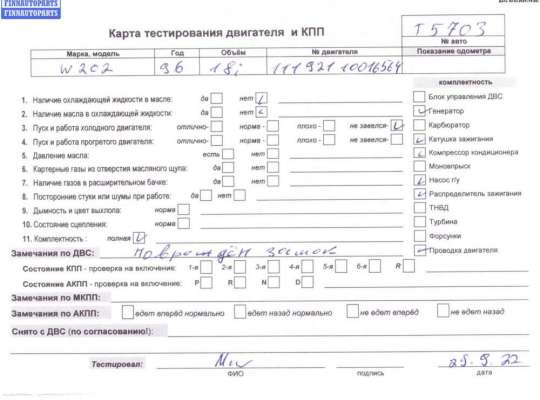 FINNAUTOPARTS
FINNAUTOPARTS
Карта тестирования двигателя и КПП
T5703
№ авто
Марка, модель Год Объём № двигателя Показание одометра
W202 96 1,8i 11192110016564
комплектность
1. Наличие охлаждающей жидкости в масле: да нет
2. Наличие масла в охлаждающей жидкости: да нет
3. Пуск и работа холодного двигателя: отлично- норма - плохо - не завелся-
4. Пуск и работа прогретого двигателя: отлично- норма - плохо - не завелся-
5. Давление масла: есть нет
6. Картерные газы из отверстия масляного щупа: да нет
7. Наличие газов в расширительном бачке: да нет
8. Посторонние стуки или шумы при работе: да нет
9. Дымность и цвет выхлопа: норма
10. Состояние сцепления: норма
11. Комплектность : полная
Блок управления ДВС
Генератор
Карбюратор
Катушка зажигания
Компрессор кондиционера
Моновпрыск
Насос г/у
Распределитель зажигания
ТНВД
Турбина
Форсунки
Проводка двигателя
Замечания по ДВС: Поврежден замок
Состояние КПП - проверка на включение: 1-я 2-я 3-я 4-я 5-я 6-я R
Состояние АКПП - проверка на включение: P R N D
Замечания по МКПП:
Замечания по АКПП: едет вперёд нормально едет назад нормально не едет вперёд не едет назад
Снято с ДВС (по согласованию!):
Тестировал:
ФИО подпись дата